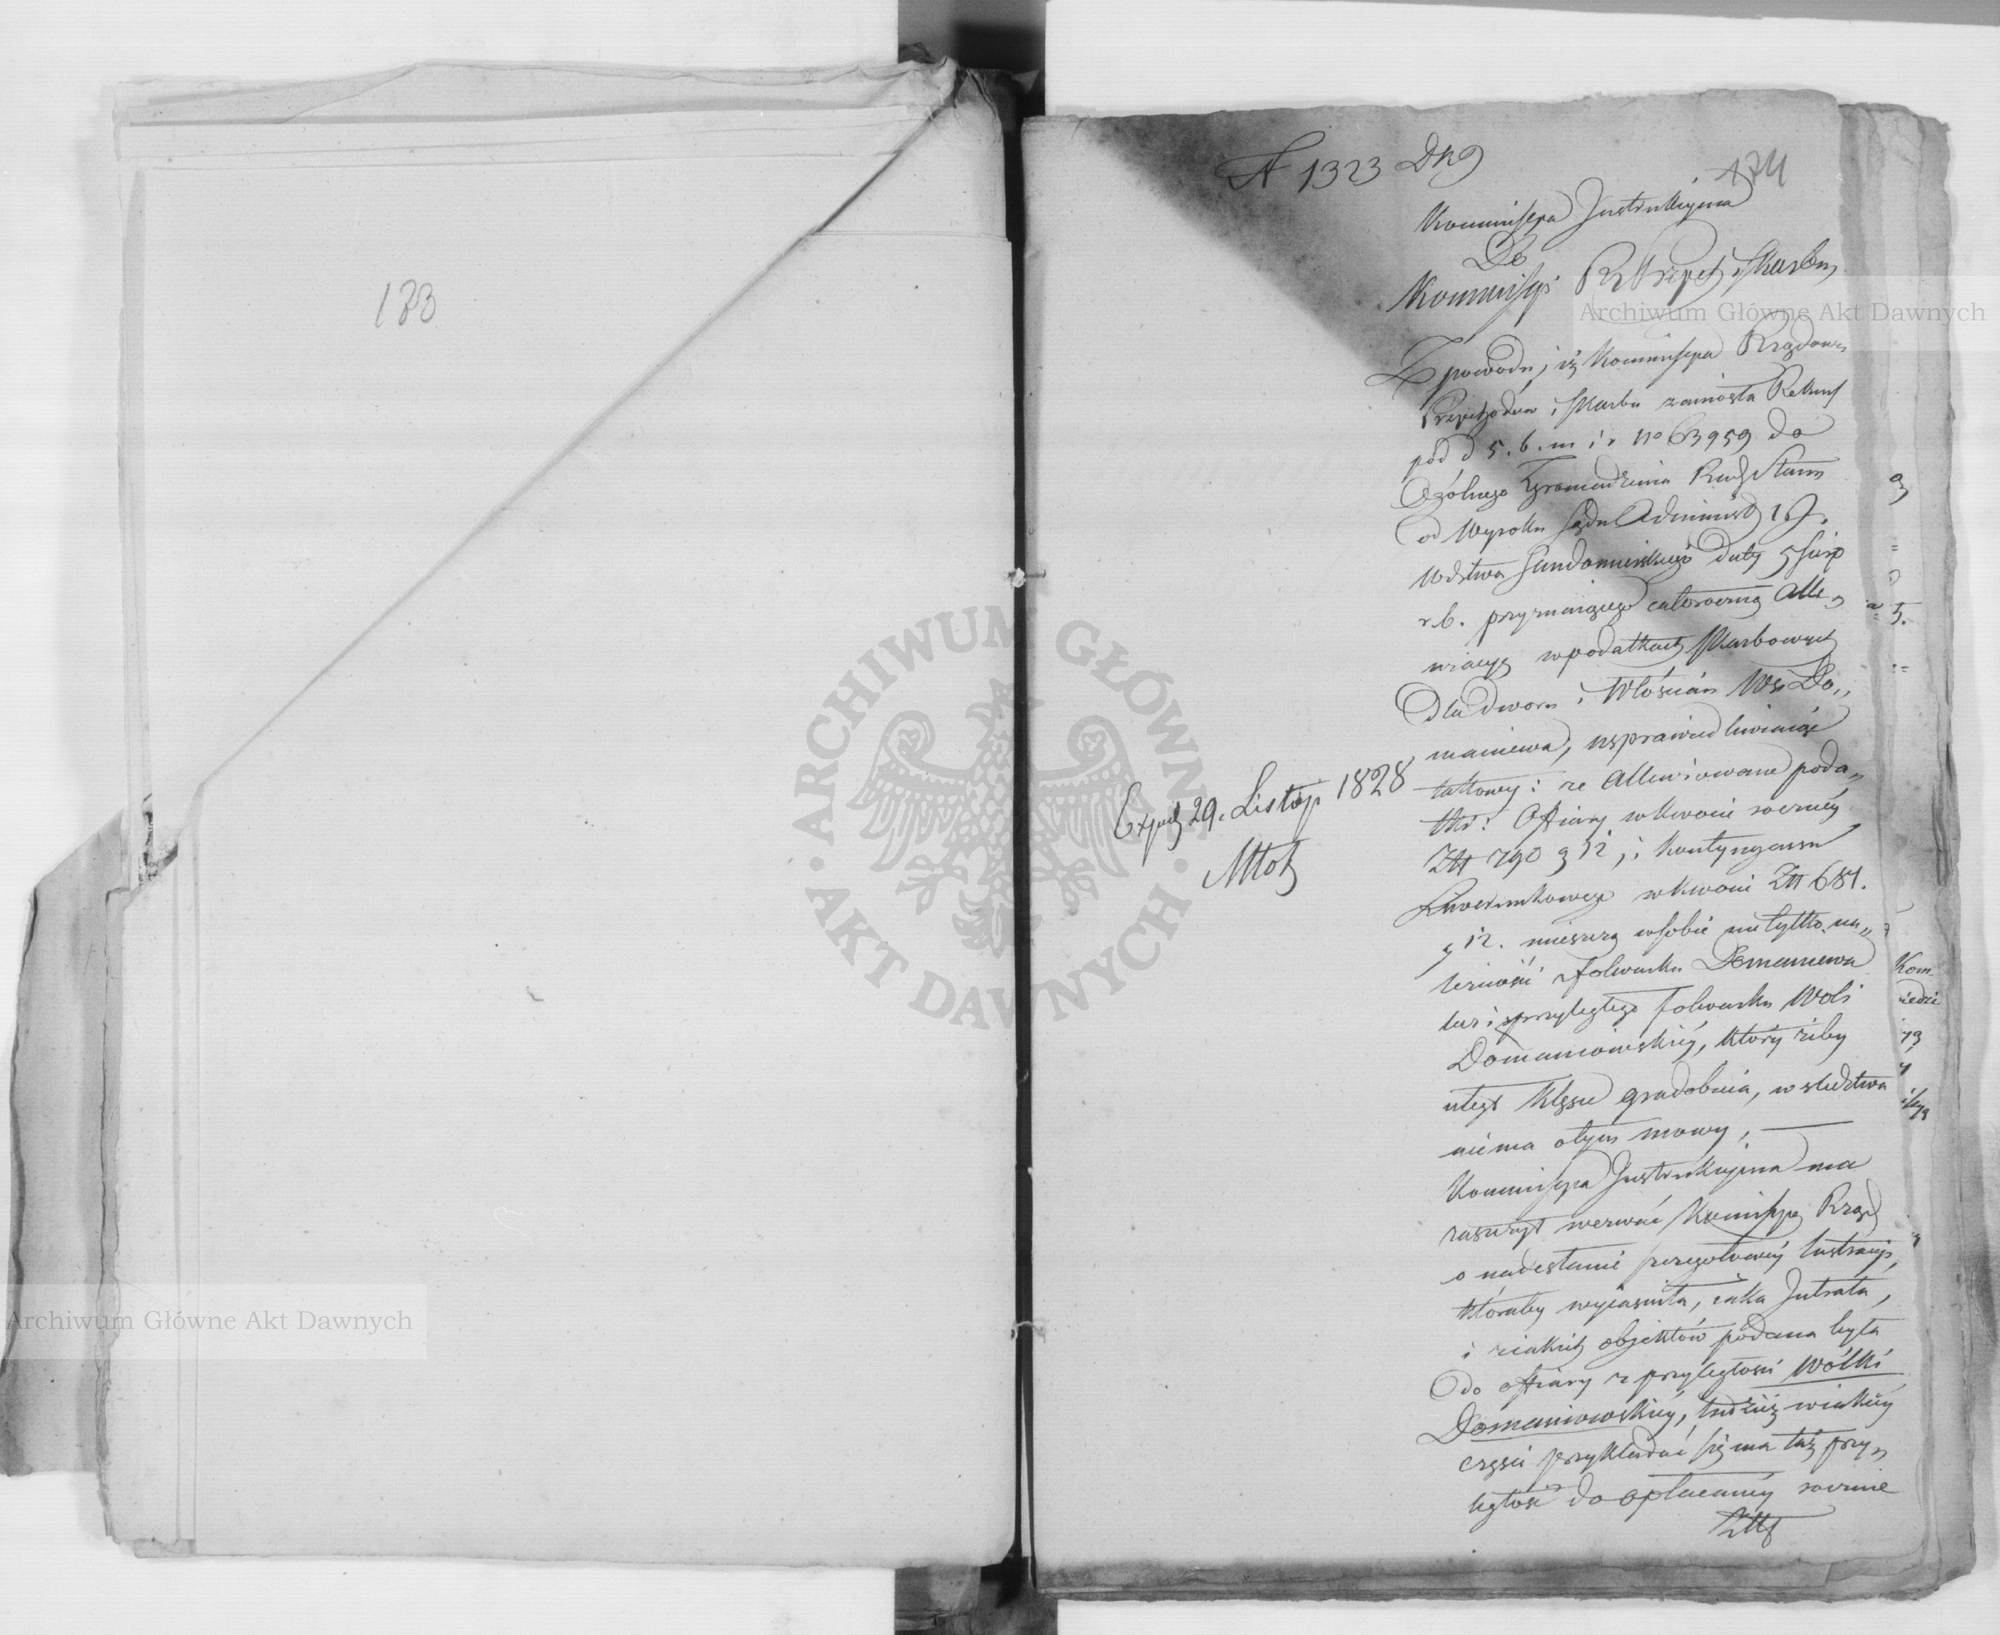 133
N 1323 Dkg
174
Kommissya Instrukcyina
Do
Kommissyi Rz Przych i Skarbu
Z powodu, iż Kommissya Rządowa
Przychodów i Skarbu zaniosła Rekurs
pod d 5. b. m i r No 63959 do
Ogólnego Zgromadzenia Rady Stanu
od Wyroku Sądu Administ
Wdztwa Sandomirskiego daty 5 Sierp
r. b. przyznaiącego całoroczną Alle„
wiacyą w podatkach Skarbowych
dla dworu i Włościan Wsi Do„
maniewa, usprawiedliwiaiąc
takowy: że Allewiowane poda„
tki: Ofiary w kwocie roczney
Złł 790 g 12, i Kontyngensu
Liwerunkowego w kwocie Złł 681.
g 12. mieszczą w sobie nie tylko na„
leżność z folwarku Domaniewa
lecz i przyległego folwarku Woli
Domaniowskiéy, który żeby
uległ klęsce gradobicia, w śledztwa
niema o tym mowy, —
Kommissya Instrukcyina ma
zaszczyt wezwać Kommissyą Rząd
o nadesłanie szczegółowéy lustracyi,
któraby wyiaśniła, iaka Intrata,
i z iakich obiektów podana była
do ofiary z przyległości Wólki
Domaniowskiéy, tudzież w iakiéy
części przykładać się ma taż przy„
ległość do opłacanéy rocznie
Złł
Exped 29. Listop 1828
Młot
Archiwum Główne Akt Dawnych
Archiwum Główne Akt Dawnych
ARCHIWUM GŁÓWNE AKT DAWNYCH